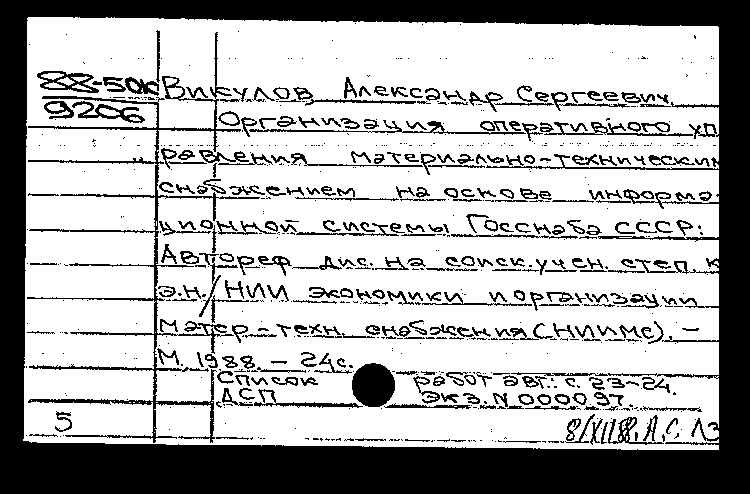 88-50к Викулов, Александр Сергеевич.
9206 Организация оперативного уп
равления материально-техническим
снабжением на основе информа-
ционной системы Госснаба СССР:
Автореф дис. на соиск. учен. степ. к
э.н./НИИ экономики и организации
матер.-техн. снабжения (НИИМС). –
М. 1988. – 24с.
Список работ авт.: с. 23-24.
ДСП экз. N 000097.
5 8/XII88. А.С.